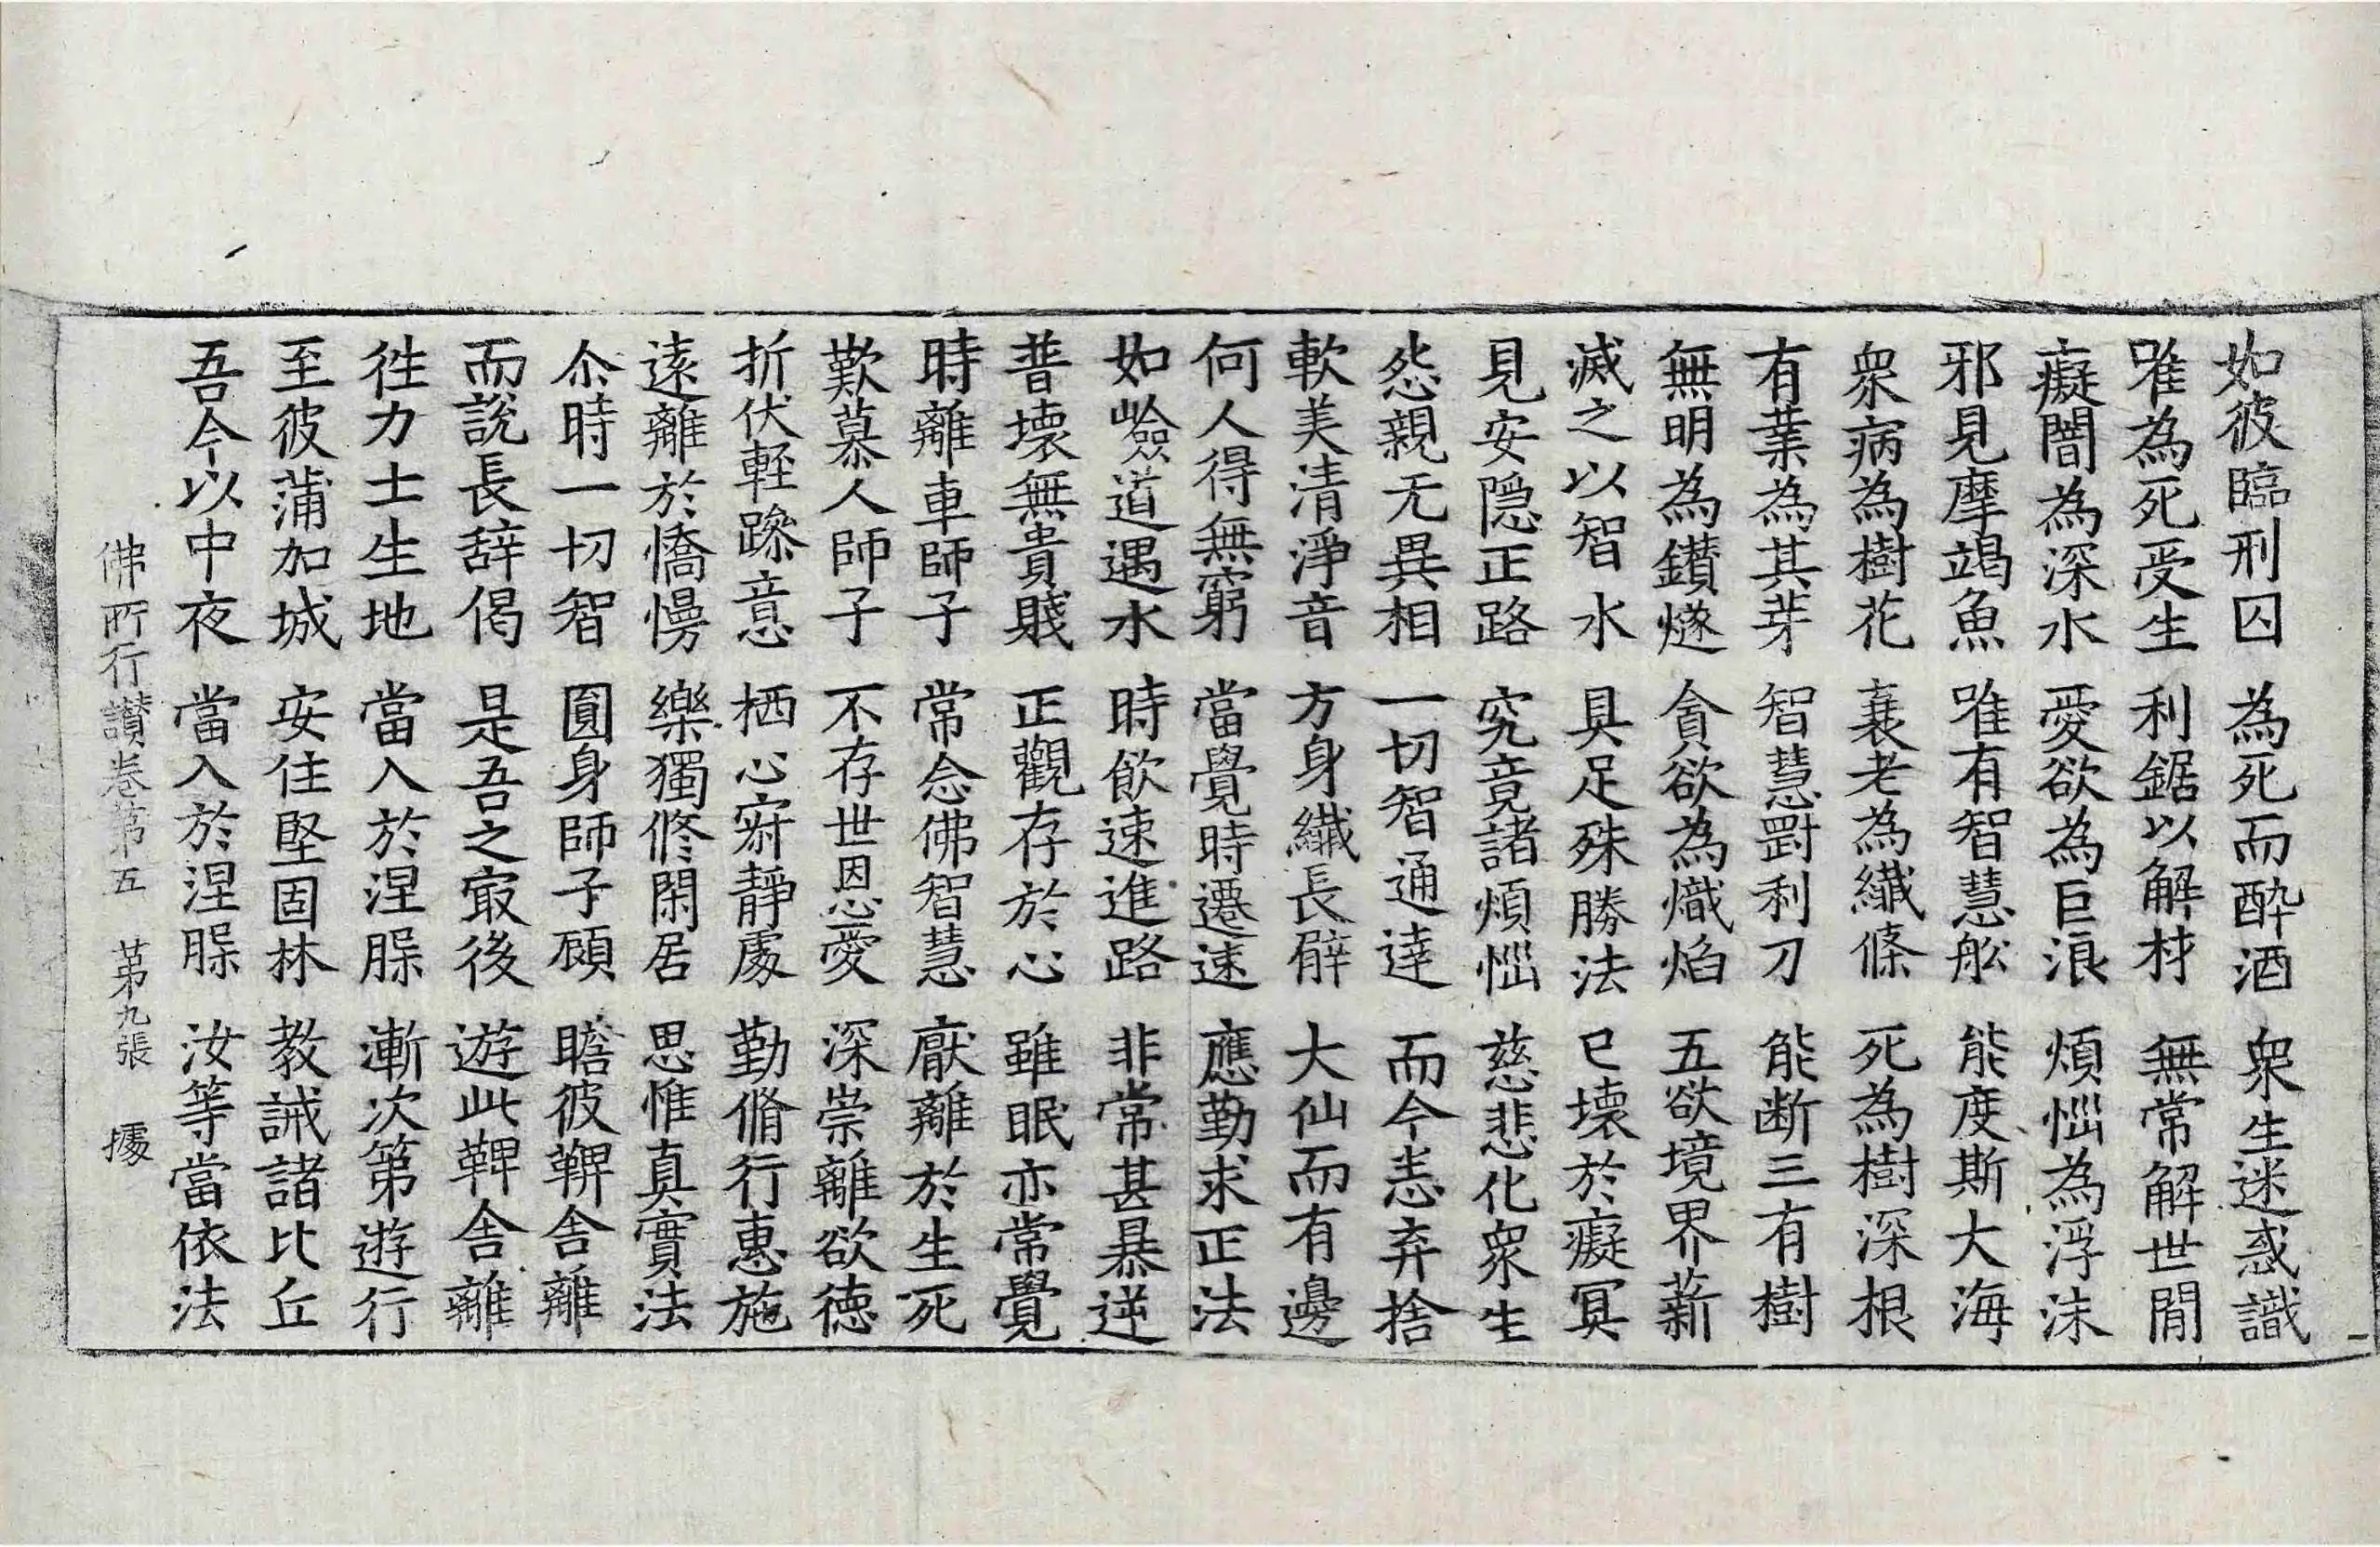 如彼臨刑囚 為死而酔酒 衆生迷惑識
唯為死受生 利鋸以解材 無常解世閒
癡闇為深水 愛欲為巨浪 煩惱為浮沫
邪見摩竭魚 唯有智慧舩 能度斯大海
衆病為樹花 衰老為纖條 死為樹深根
有業為其芽 智慧罰利刀 能断三有樹
無明為鑚燧 貪欲為熾焰 五欲境界薪
滅之以智水 具足殊勝法 已壞於癡冥
見安隠正路 究竟諸煩惱 慈悲化衆生
怨親无異相 一切智通達 而今恚弃捨
軟美清淨音 方身纖長臂 大仙而有邊
何人得無窮 當覺時遷速 應勤求正法
如嶮道遇水 時飲速進路 非常甚暴逆
普壞無貴賤 正觀存於心 雖眠亦常覺
時離車師子 常念佛智慧 厭離於生死
歎慕人師子 不存世恩愛 深崇離欲徳
折伏輕躁意 栖心寂靜處 勤脩行惠施
遠離於憍慢 樂獨修閑居 思惟真實法
尒時一切智 圓身師子顧 瞻彼鞞舎離
而說長辝偈 是吾之㝡後 遊此鞞舎離
徃力士生地 當入於涅𦙁 漸次第遊行
至彼蒲加城 安住堅固林 教誡諸比丘
吾今以中夜 當入於涅𦙁 汝等當依法
佛所行讃卷第五 第九張 據